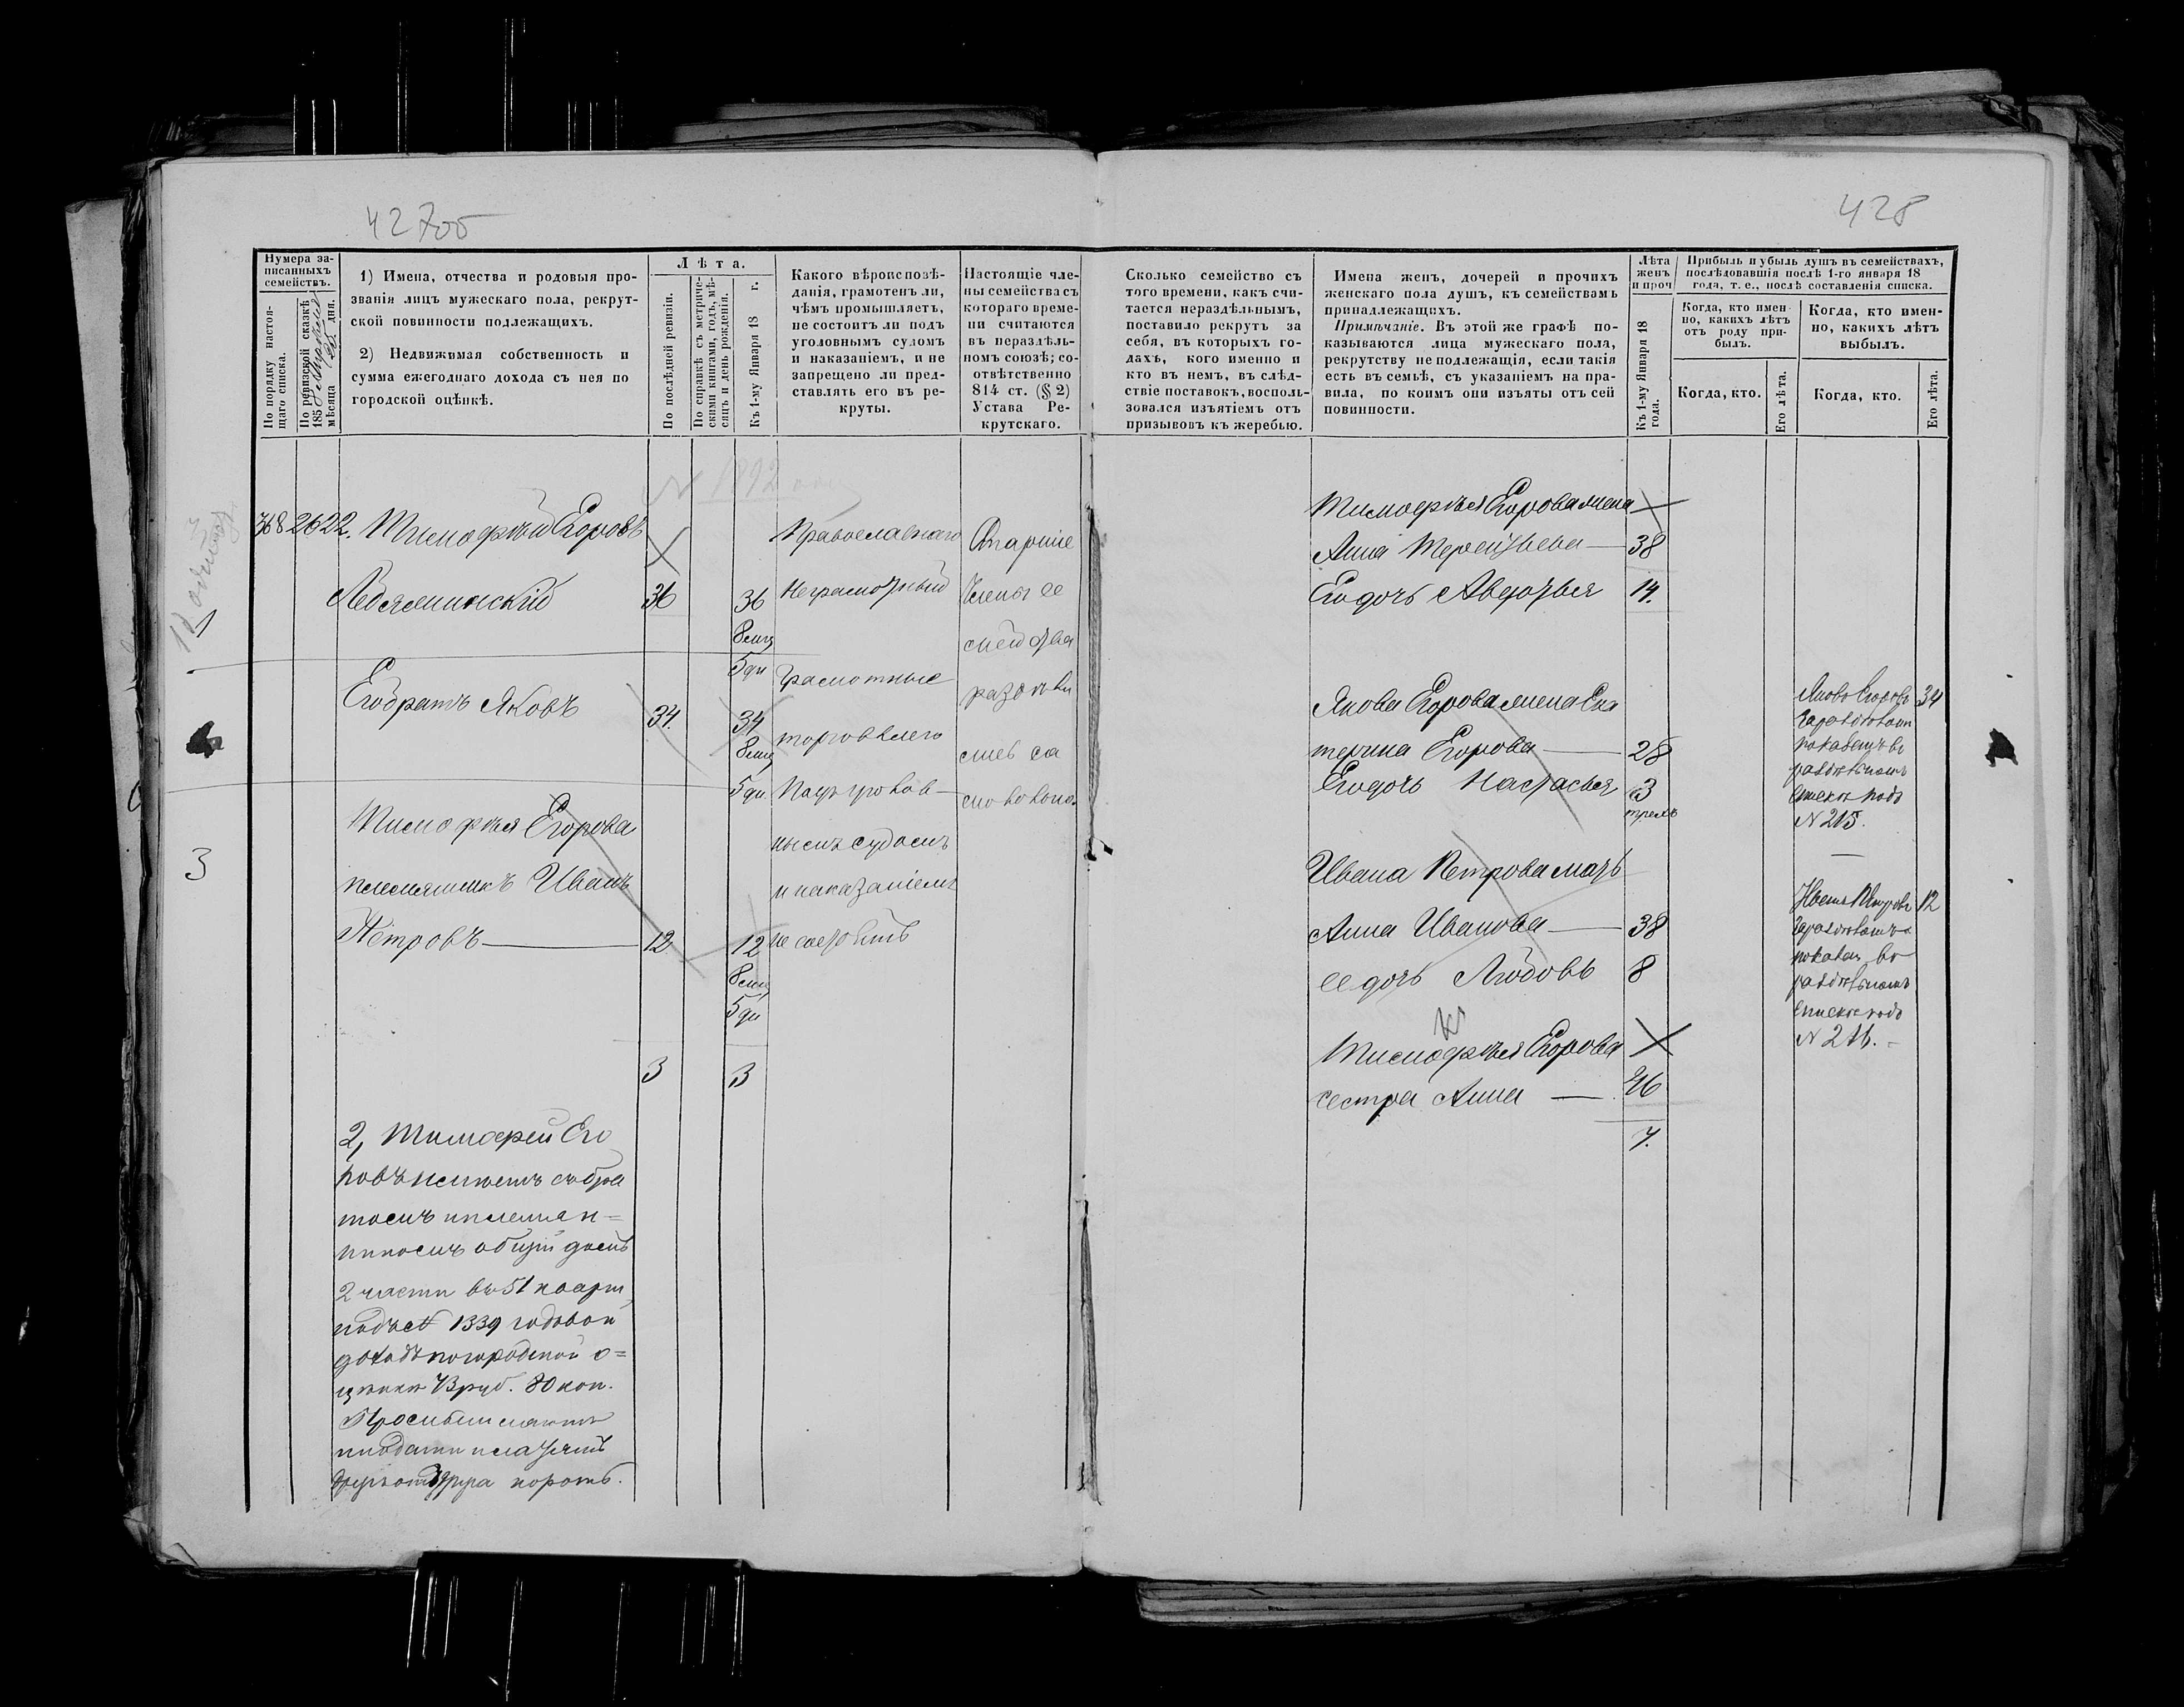 427об
428
Нумера записанныхъ семействъ.
По порядку настоящаго списка.
По ревизской сказкѣ 185 мѣсяца дня.
1) Имена, отчества и родовыя прозванія лицъ мужескаго пола, рекрутской повинности подлежащихъ.
2) Недвижимая собственность и сумма ежегоднаго дохода съ нея по городской оцѣнкѣ.
Лѣта.
По послѣдней ревизіи.
По справкѣ съ метрическими книгами, годъ, мѣсяцъ и день рожденія.
Къ 1-му Января 18 г.
Какого вѣроисповѣданія, грамотенъ ли, чѣмъ промышляетъ, не состоитъ ли подъ уголовнымъ судомъ и наказаніемъ, и не запрещено ли представлять его въ рекруты.
Настоящіе члены семейства съ котораго времени считаются въ нераздѣльномъ союзѣ; соотвѣтственно 814 ст. (§ 2) Устава Рекрутскаго.
Сколько семейство съ того времени, какъ считается нераздѣльнымъ, поставило рекрутъ за себя, въ которыхъ годахъ, кого именно и кто въ немъ, въ слѣдствіе поставокъ, воспользовался изъятіемъ отъ призывовъ къ жеребью.
Имена женъ, дочерей и прочихъ женскаго пола душъ, къ семействамъ принадлежащихъ.
Примѣчаніе. Въ этой же графѣ показываются лица мужескаго пола, рекрутству не подлежащія, если такія есть въ семьѣ, съ указаніемъ на правила, по коимъ они изъяты отъ сей повинности.
Лѣта женъ и проч
Къ 1-му Января 18 года.
Прибыль и убыль душъ въ семействахъ, послѣдовавшія послѣ 1-го января 18 года, т. е., послѣ составленія списка.
Когда, кто именно, какихъ лѣтъ отъ роду прибылъ.
Когда, кто именно, какихъ лѣтъ выбылъ.
Когда, кто.
Его лѣта.
Когда, кто.
Его лѣта.
2622. Тимофѣй Егоровъ
36
36
8 мц
5 дн
Его братъ Яковъ
34.
34
8 мц
5 дн
Тимофѣя Егорова
племянникъ Иванъ
Петровъ
12
12
8 мц
5 дн
3
3
2, Тимофей Его
ровъ имѣетъ съ бра
томъ и племян=
никомъ общій домъ
2 части въ 51 кварт
подъ № 1339 годовой
доходъ по городской о=
цѣнкѣ 73 руб. 80 коп.
Православнаго
Неграмотный
Грамотные
торговлею
Подъ уголов-
нымъ судомъ
и наказаніемъ
не состоитъ
Старшіе
члены се
мей два
раздѣли
Тимофѣя Егорова жена
Анна Терентьева 38
Его дочь Авдотья 14.
Якова Егорова жена Ека
терина Егорова 28
Его дочь Настасья 3
Ивана Петрова мать
Анна Иванова 38
ее дочь Любовь 8
Тимофѣя Егорова
сестра Анна 46
7.
Яковъ Егоровъ 34
показанъ въ
раздѣльномъ
спискѣ подъ
№ 215.
Иванъ Петровъ 12
показан въ
раздѣльномъ
спискѣ подъ
№ 216.
3